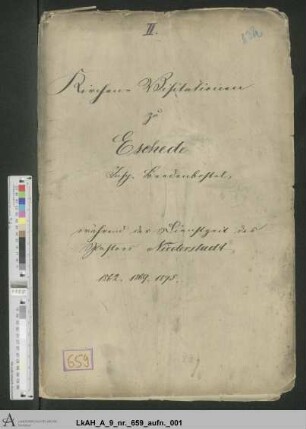 III.
Kirchen-Visitationen
zu
Eschede
Insp. Beedenbostel,
während der Dienstzeit des
Pastors
1862. 1869. 1875.
659
LkAH_A_9_nr._659_aufn._001